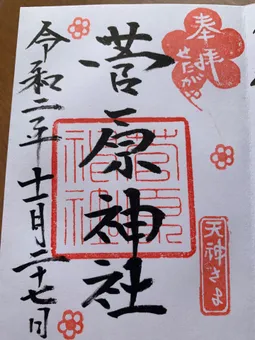 奉拝
せたがや
菅原神社
菅原
神社
天神さま
令和二年十一月二十七日